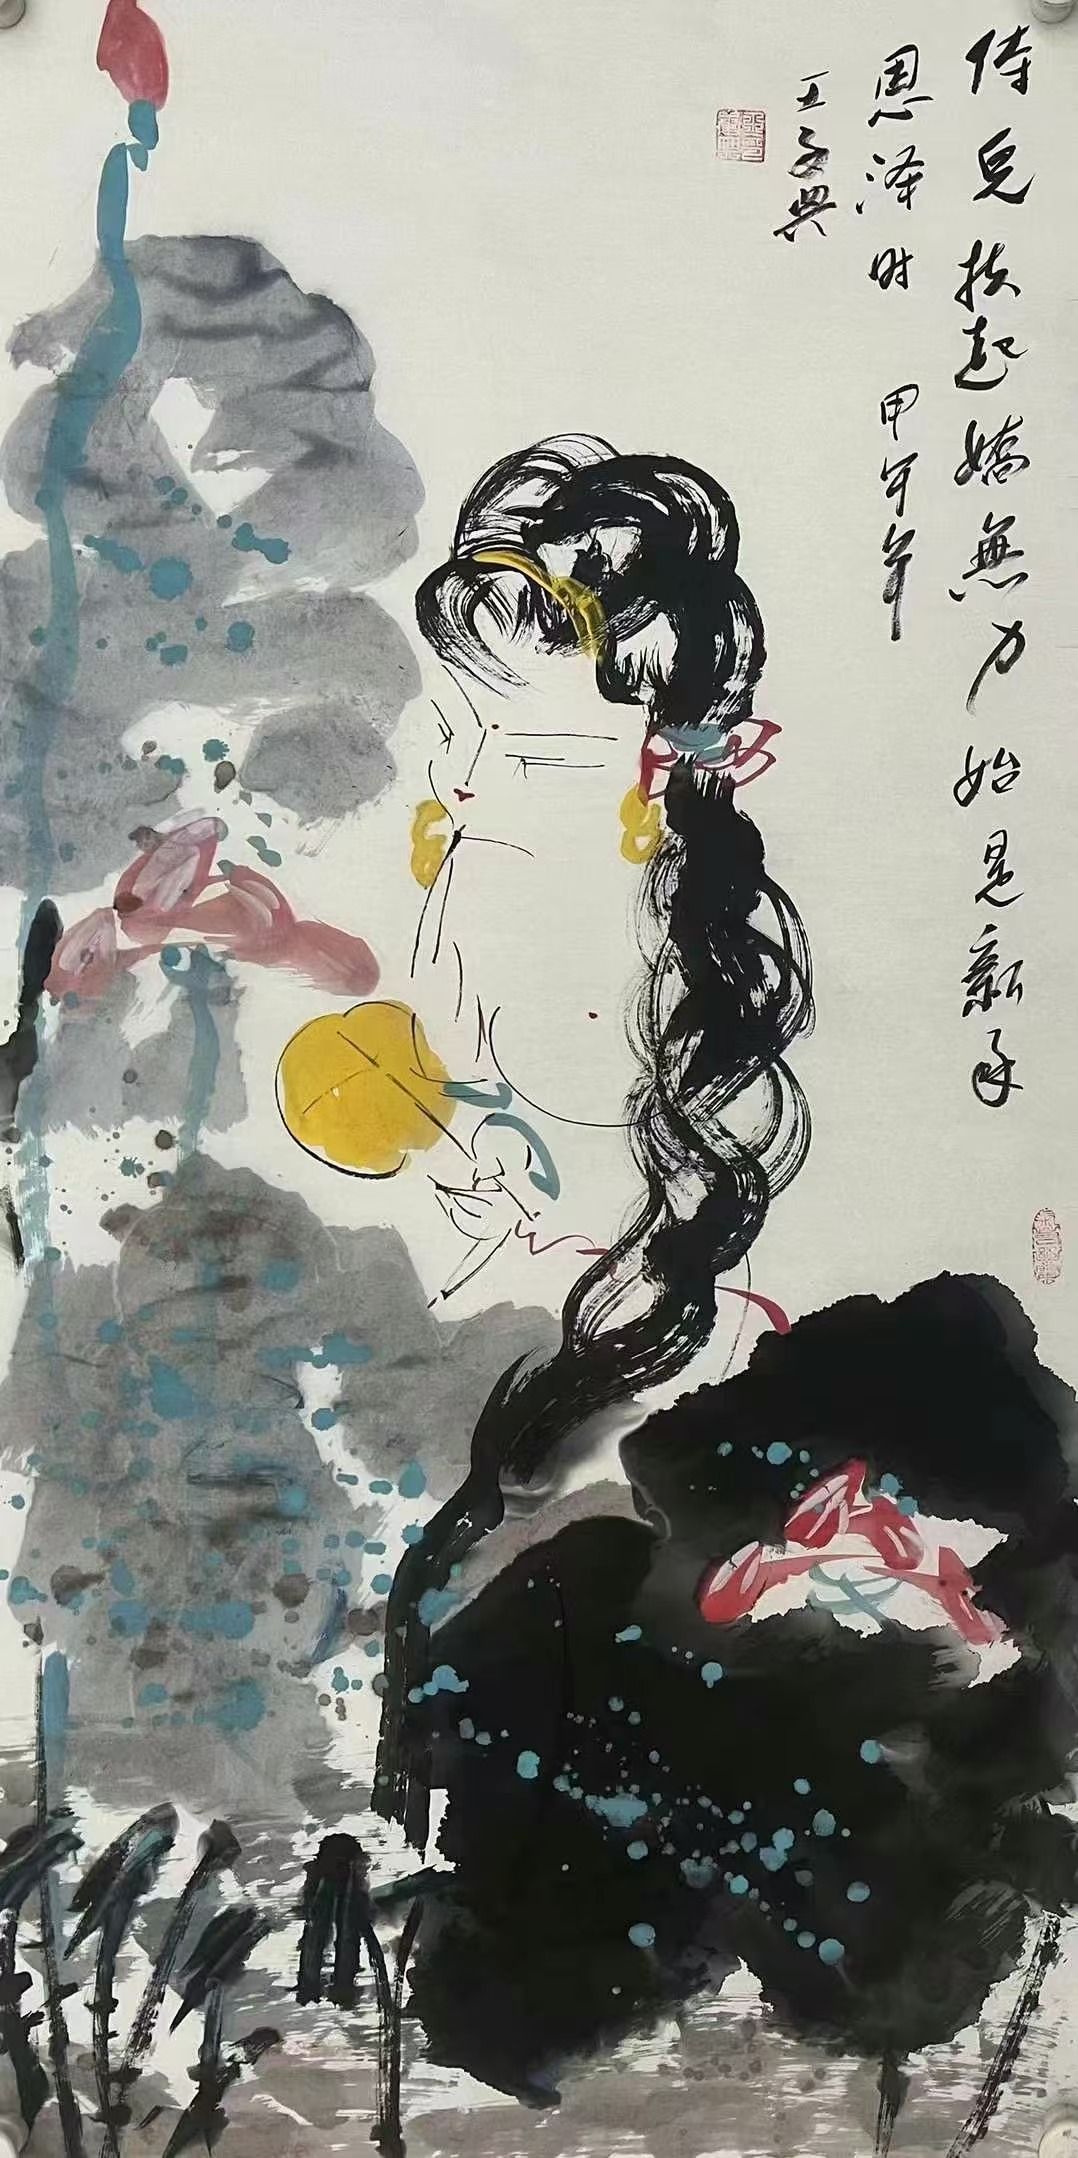 侍兒扶起嬌無力始是新承
恩泽时 甲午年
王子興